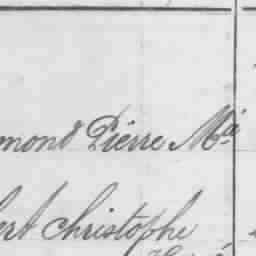 mond Pierre Mie
bert Christophe